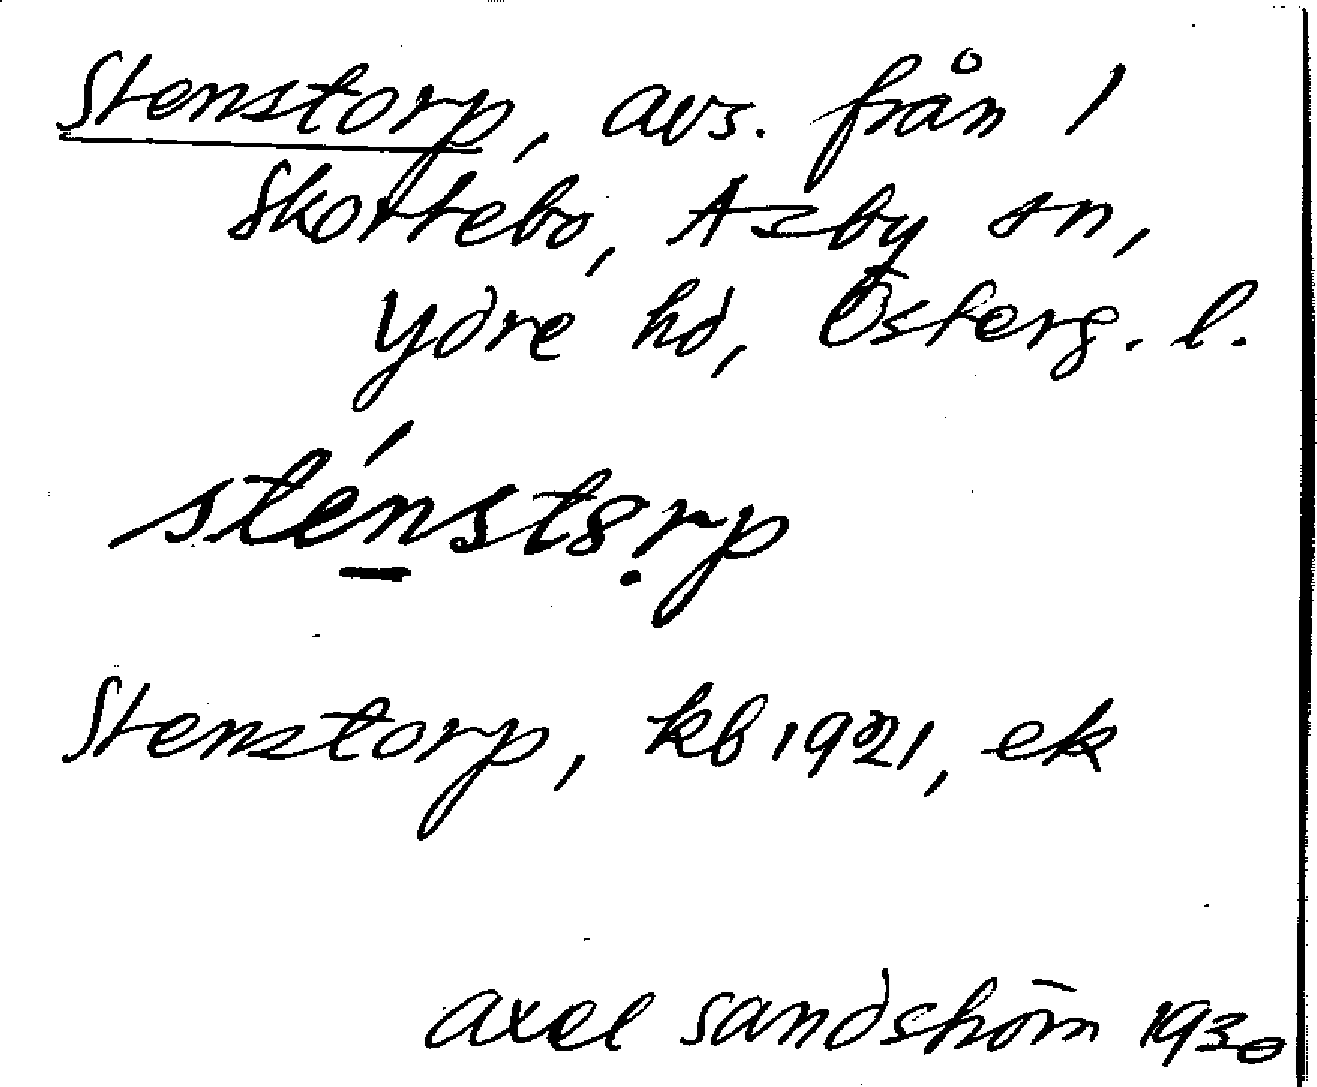 Stenstorp, avs. från 1
Skottebo, Asby sn,
Ydre hd, Österg. l.
sténstrp
Stenstorp, kb 1921, ek
Axel Sandström 1930